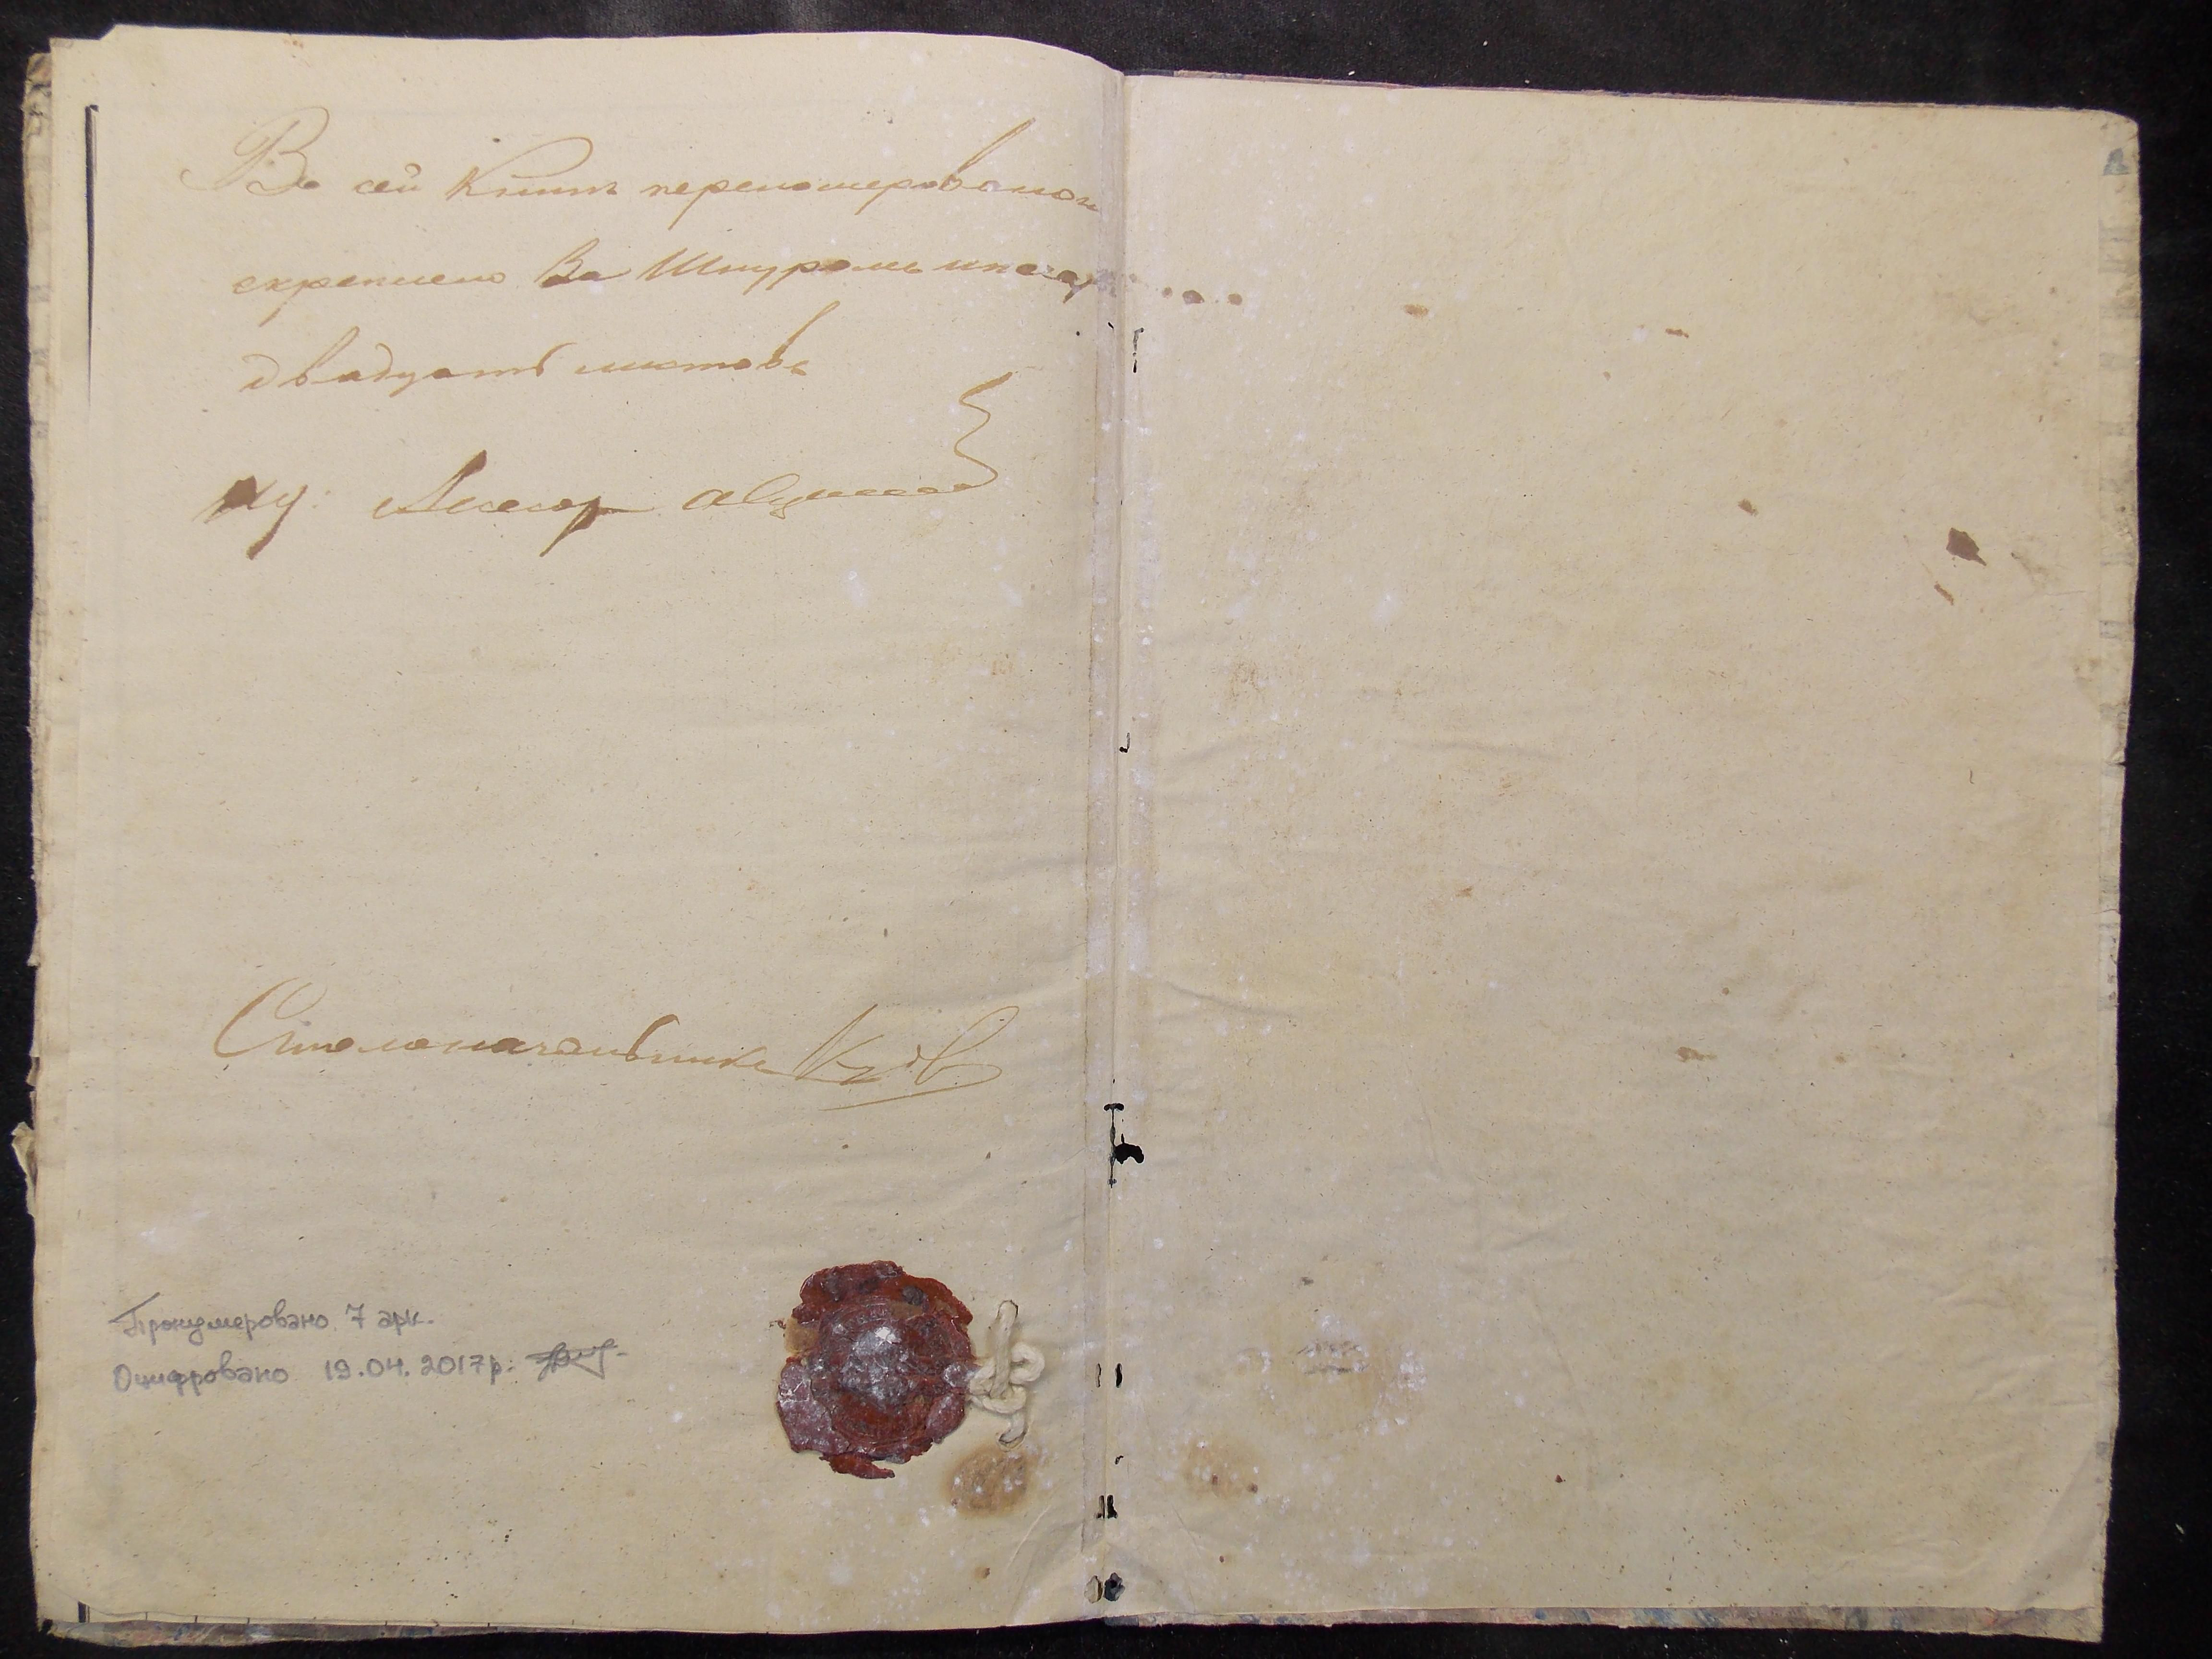 Во сей Книги перенумеровано и
скреплено За Шнуромъ и печат
двадцать листовъ
Ассесор
Столоначальникъ
Пронумеровано 7 арк.
Оцифровано 19.04.2017р.